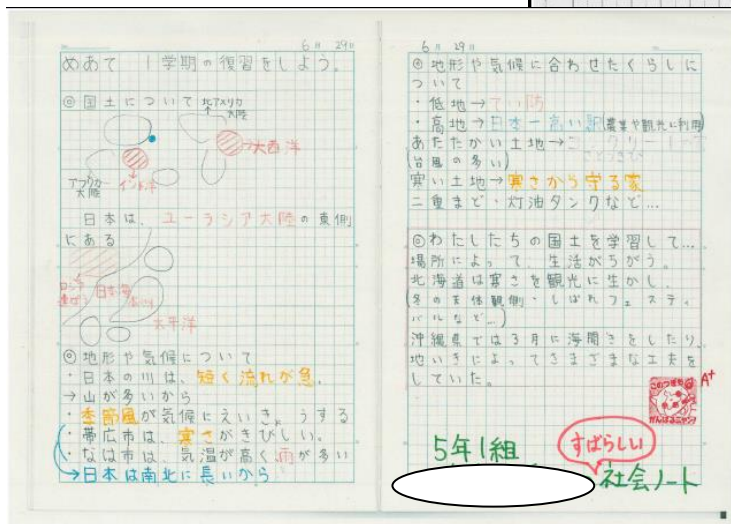 6月 29日
めあて 1学期の復習をしよう。
◎国土について
北アメリカ大陸
→大西洋
アフリカ大陸
インド洋
日本は、ユーラシア大陸の東側
にある
ロシア連ぽう
日本海
太平洋
◎地形や気候について
・日本の川は、短く流れが急。
→山が多いから
・季節風が気候にえいきょうする
・帯広市は、寒さがきびしい。
・なは市は、気温が高く、雨が多い
→日本は南北に長いから
6月 29日
◎地形や気候に合わせたくらしに
ついて
・低地→てい防
・高地→日本一高い駅(農業や観光に利用)
あたたかい土地→コンクリート
(台風の多い) さとうきび
寒い土地→寒さから守る家
二重まど・灯油タンクなど…
◎わたしたちの国土を学習して…
場所によって、生活がちがう。
北海道は寒さを観光に生かし、
(冬の天体観側・しばれフェスティ
バルなど…)
沖縄県では3月に海開きをしたり、
地いきによってさまざまな工夫を
していた。
A+
このつぎも
がんばるニャン!
5年1組
すばらしい
社会ノート